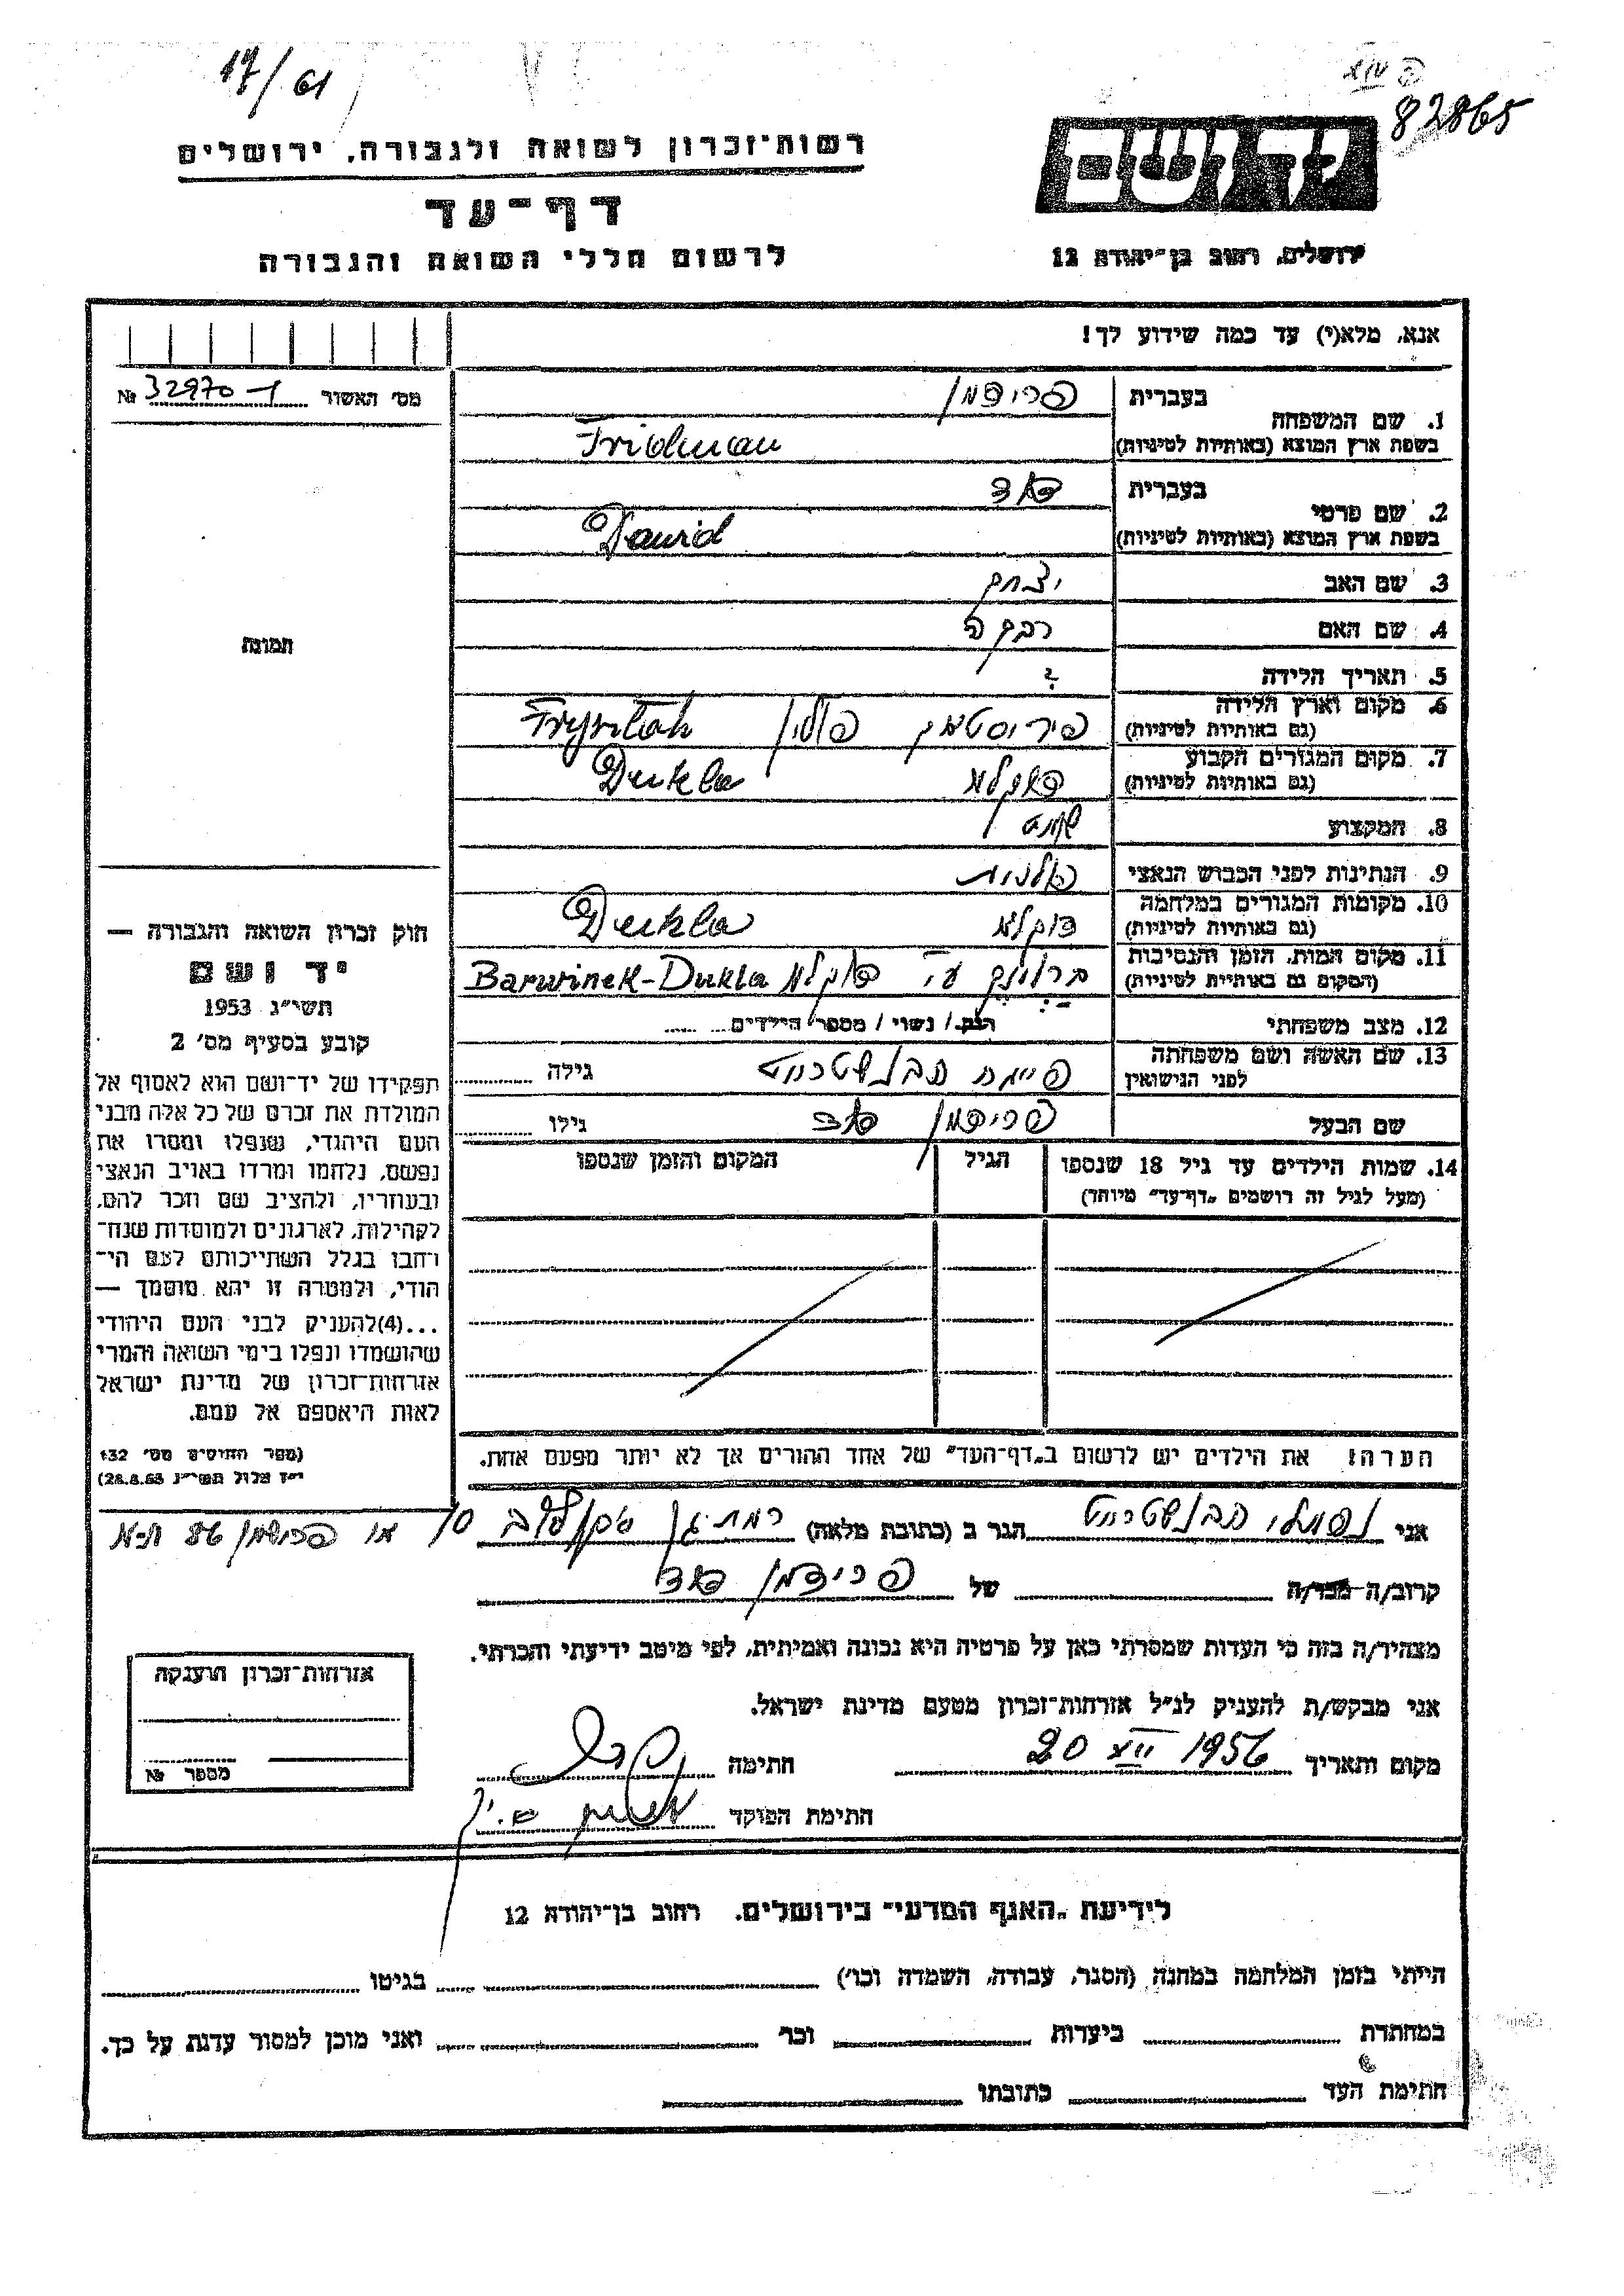 17/61
82865
יד ושם
רשות־זכרון לשואה ולגבורה, ירושלים
דף־עד
לרשום חללי השואה והגבורה
ירושלים, רחוב בן־יהודה 12
אנא, מלא(י) עד כמה שידוע לך!
מס׳ האשור № 32970-1
1. שם המשפחה
בעברית פרידמן
בשפת ארץ המוצא (באותיות לטיניות) Fridman
2. שם פרטי
בעברית דוד
בשפת ארץ המוצא (באותיות לטיניות) Dawid
3. שם האב יצחק
4. שם האם רבקה
5. תאריך הלידה ?
6. מקום וארץ הלידה
(גם באותיות לטיניות) פריסטק פולין Frysztak
7. מקום המגורים הקבוע
(גם באותיות לטיניות) דוקלא Dukla
8. המקצוע
9. הנתינות לפני הכבוש הנאצי פולנית
10. מקומות המגורים במלחמה
(גם באותיות לטיניות) דוקלא Dukla
11. מקום המות, הזמן והנסיבות
(המקום גם באותיות לטיניות) ברווינק ע״י דוקלא Barwinek-Dukla
12. מצב משפחתי רווק / נשוי / מספר הילדים
13. שם האשה ושם משפחתה
לפני הנישואין גילה
שם הבעל פרידמן דוד גילו
14. שמות הילדים עד גיל 18 שנספו
(מעל לגיל זה רושמים „דף־עד״ מיוחד)
הגיל
המקום והזמן שנספו
הערה: את הילדים יש לרשום ב„דף־העד״ של אחד ההורים אך לא יותר מפעם אחת.
תמונה
חוק זכרון השואה והגבורה —
יד ושם
תשי״ג 1953
קובע בסעיף מס׳ 2
תפקידו של יד־ושם הוא לאסוף אל
המולדת את זכרם של כל אלה מבני
העם היהודי, שנפלו ומסרו את
נפשם, נלחמו ומרדו באויב הנאצי
ובעוזריו, ולהציב שם וזכר להם,
לקהילות, לארגונים ולמוסדות שנח־
רבו בגלל השתייכותם לעם הי־
הודי, ולמטרה זו יהא מוסמך —
...(4) להעניק לבני העם היהודי
שהושמדו ונפלו בימי השואה והמרי
אזרחות־זכרון של מדינת ישראל
לאות היאספם אל עמם.
(ספר החוקים מס׳ 132
י״ז אלול תשי״ג 28.8.53)
אני נפתלי הגר ב (כתובת מלאה) רמת גן
קרוב/ה מכר/ה של פרידמן דוד
מצהיר/ה בזה כי העדות שמסרתי כאן על פרטיה היא נכונה ואמיתית, לפי מיטב ידיעתי והכרתי.
אני מבקש/ת להעניק לנ״ל אזרחות־זכרון מטעם מדינת ישראל.
מקום ותאריך 20 XII 1956 חתימה
חתימת הפוקד
אזרחות־זכרון הוענקה
מספר №
לידיעת „האגף המדעי״ בירושלים, רחוב בן־יהודה 12
הייתי בזמן המלחמה במחנה (הסגר, עבודה, השמדה וכו׳) בגיטו
במחתרת ביערות וכו׳ ואני מוכן למסור עדות על כך.
חתימת העד כתובתו